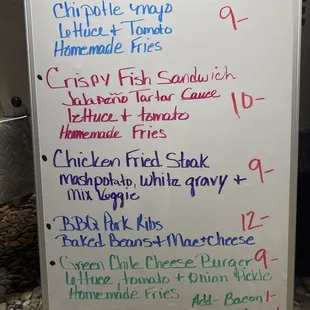 Chipotle mayo 9-
Lettuce + Tomato
Homemade Fries
Crispy Fish Sandwich
Jalapeño Tartar Cauce 10-
lettuce + tomato
Homemade Fries
Chicken Fried Steak 9-
Mashpotato, White gravy +
Mix Veggie
BBQ Pork Ribs 12-
Baked Beans + Mac+Cheese
Green Chile Cheese Burger 9-
Lettuce, tomato + Onion Pickle
Homemade Fries Add- Bacon 1-